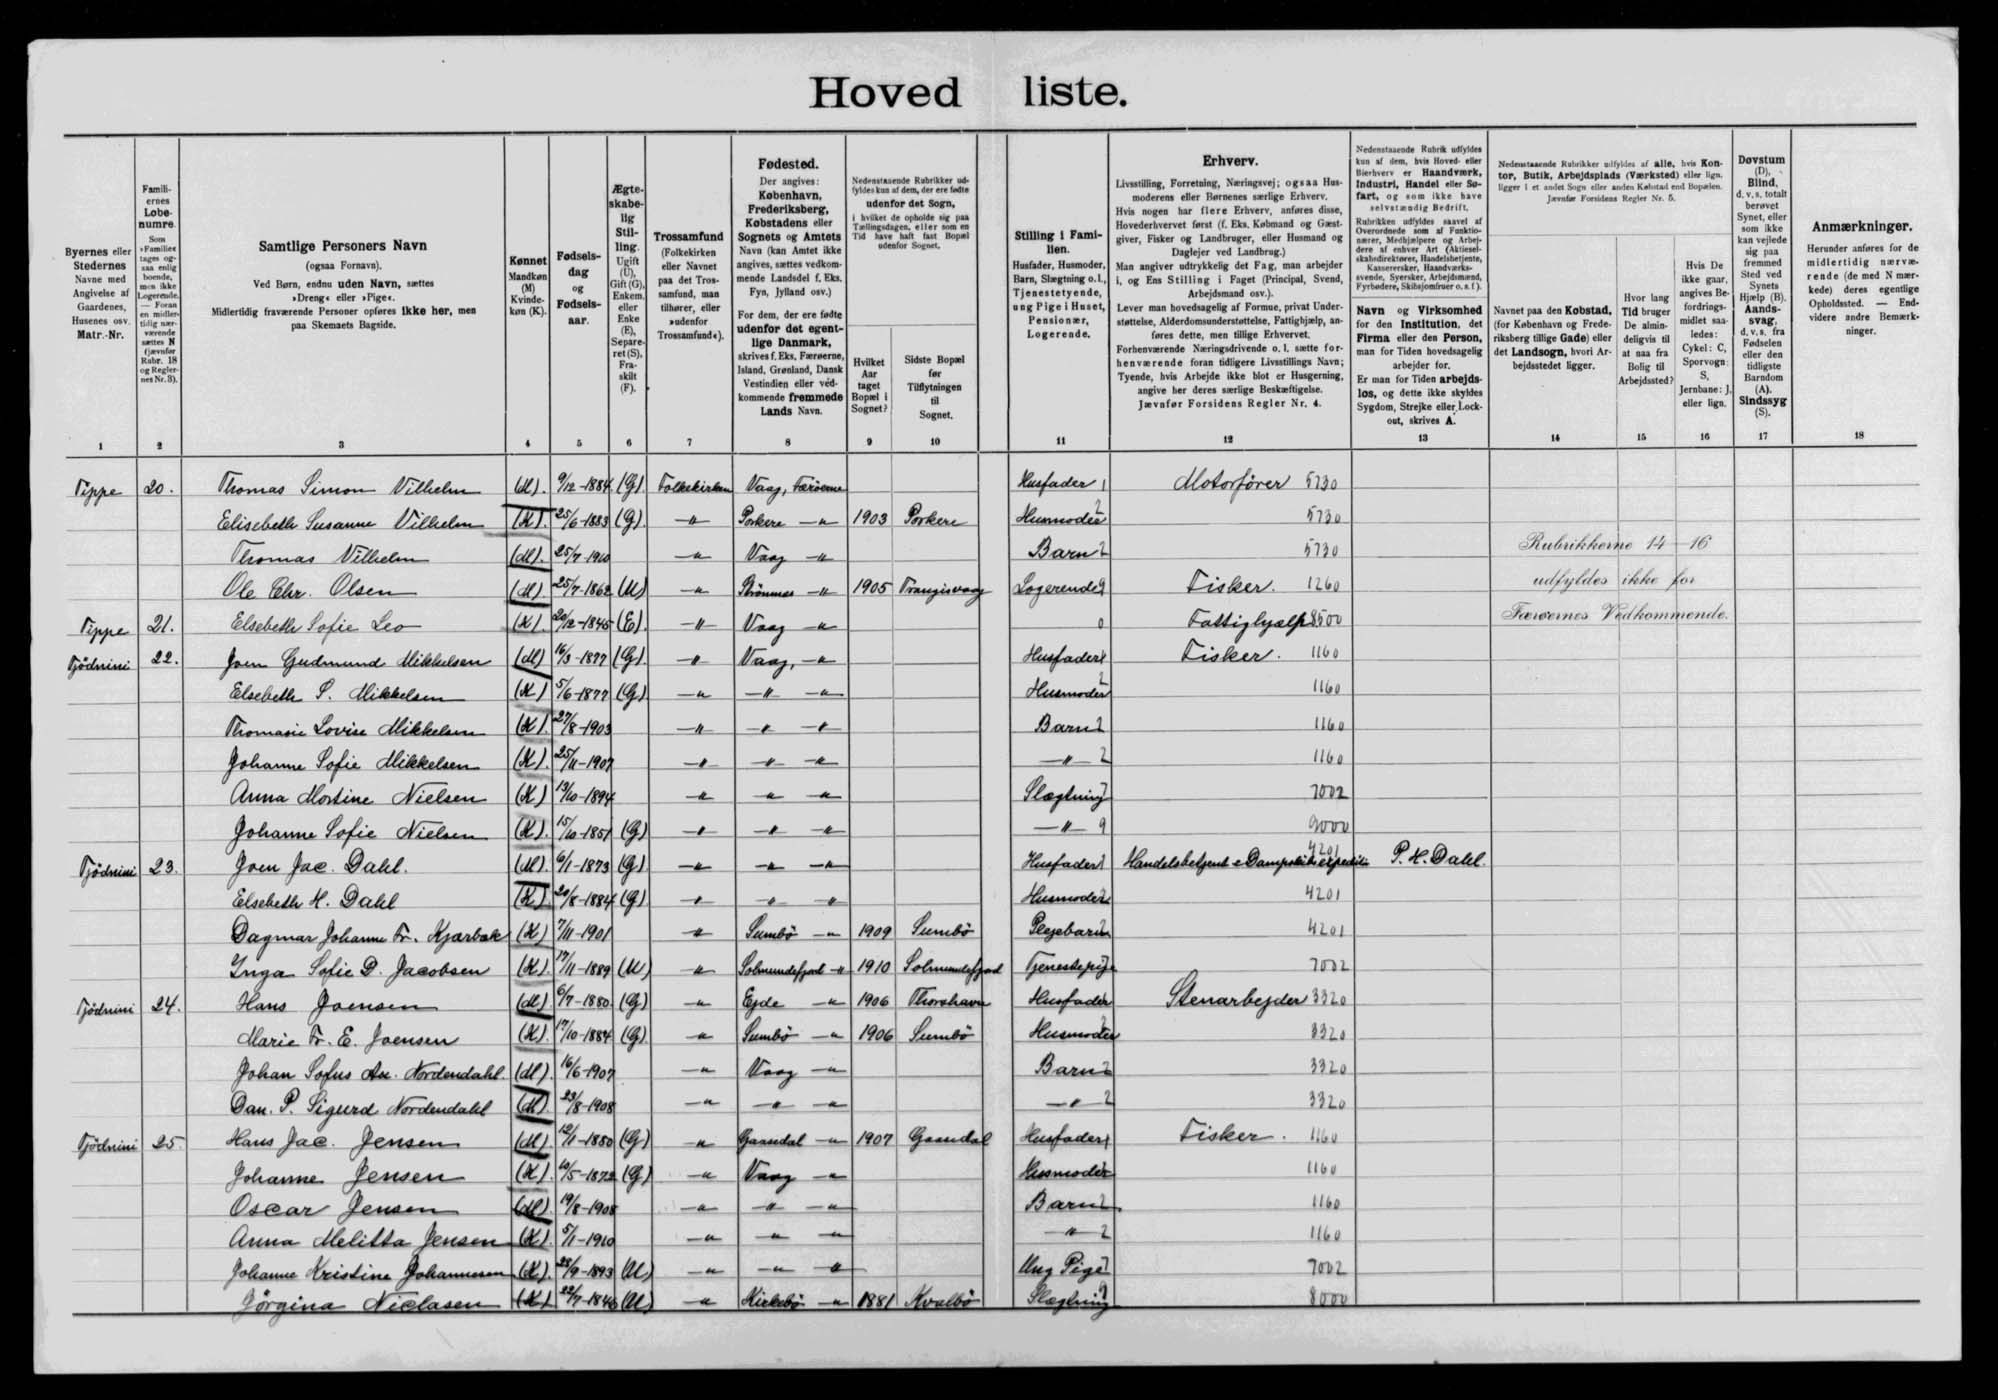 Hoved liste.
Byernes eller
Stedernes
Navne med
Angivelse af
Gaardenes,
Husenes osv.
Matr.-Nr.
1
Famili-
ernes
Løbe-
numre.
Som
»Familie«
tages og-
saa enlig
boende,
men ikke
Logerende.
— Foran
en midler-
tidig nær-
værende
sættes N
(jævnfør
Rubr. 18
og Regler-
nes Nr. 3).
2
Samtlige Personers Navn
(ogsaa Fornavn).
Ved Børn, endnu uden Navn, sættes
»Dreng« eller »Pige«.
Midlertidig fraværende Personer opføres ikke her, men
paa Skemaets Bagside.
3
Kønnet
Mandkøn
(M)
Kvinde-
køn (K).
4
Fødsels-
dag
og
Fødsels-
aar.
5
Ægte-
skabe-
lig
Stil-
ling.
Ugift
(U),
Gift (G),
Enkem.
eller
Enke
(E),
Separe-
ret (S),
Fra-
skilt
(F).
6
Trossamfund
(Folkekirken
eller Navnet
paa det Tros-
samfund, man
tilhører, eller
»udenfor
Trossamfund«).
7
Fødested.
Der angives:
København,
Frederiksberg,
Købstadens eller
Sognets og Amtets
Navn (kan Amtet ikke
angives, sættes vedkom-
mende Landsdel f. Eks.
Fyn, Jylland osv.)
For dem, der ere fødte
udenfor det egent-
lige Danmark,
skrives f. Eks. Færøerne,
Island, Grønland, Dansk
Vestindien eller ved-
kommende fremmede
Lands Navn.
8
Nedenstaaende Rubrikker ud-
fyldes kun af dem, der ere fødte
udenfor det Sogn,
i hvilket de opholde sig paa
Tællingsdagen, eller som en
Tid have haft fast Bopæl
udenfor Sognet.
Hvilket
Aar
taget
Bopæl i
Sognet?
9
Sidste Bopæl
før
Tilflytningen
til
Sognet.
10
Stilling i Fami-
lien.
Husfader, Husmoder,
Barn, Slægtning o. l.,
Tjenestetyende,
ung Pige i Huset,
Pensionær,
Logerende.
11
Erhverv.
Livsstilling, Forretning, Næringsvej; ogsaa Hus-
moderens eller Børnenes særlige Erhverv.
Hvis nogen har flere Erhverv, anføres disse,
Hovederhvervet først (f. Eks. Købmand og Gæst-
giver, Fisker og Landbruger, eller Husmand og
Daglejer ved Landbrug.)
Man angiver udtrykkelig det Fag, man arbejder
i, og Ens Stilling i Faget (Principal, Svend,
Arbejdsmand osv.).
Lever man hovedsagelig af Formue, privat Under-
støttelse, Alderdomsunderstøttelse, Fattighjælp, an-
føres dette, men tillige Erhvervet.
Forhenværende Næringsdrivende o. l. sætte for-
henværende foran tidligere Livsstillings Navn;
Tyende, hvis Arbejde ikke blot er Husgerning,
angive her deres særlige Beskæftigelse.
Jævnfør Forsidens Regler Nr. 4.
12
Nedenstaaende Rubrik udfyldes
kun af dem, hvis Hoved- eller
Bierhverv er Haandværk,
Industri, Handel eller Sø-
fart, og som ikke have
selvstændig Bedrift.
Rubrikken udfyldes saavel af
Overordnede som af Funktio-
nærer, Medhjælpere og Arbej-
dere af enhver Art (Aktiesel-
skabsdirektører, Handelsbetjente,
Kassererersker, Haandværks-
svende, Syersker, Arbejdsmænd,
Fyrbødere, Skibsjomfruer o. s. f.).
Navn og Virksomhed
for den Institution, det
Firma eller den Person,
man for Tiden hovedsagelig
arbejder for.
Er man for Tiden arbejds-
løs, og dette ikke skyldes
Sygdom, Strejke eller Lock-
out, skrives A.
13
Nedenstaaende Rubrikker udfyldes af alle, hvis Kon-
tor, Butik, Arbejdsplads (Værksted) eller lign.
ligger i et andet Sogn eller anden Købstad end Bopælen.
Jævnfør Forsidens Regler Nr. 5.
Navnet paa den Købstad,
(for København og Frede-
riksberg tillige Gade) eller
det Landsogn, hvori Ar-
bejdsstedet ligger.
14
Hvor lang
Tid bruger
De almin-
deligvis til
at naa fra
Bolig til
Arbejdssted?
15
Hvis De
ikke gaar,
angives Be-
fordrings-
midlet saa-
ledes:
Cykel: C,
Sporvogn:
S,
Jernbane: J,
eller lign.
16
Døvstum
(D),
Blind,
d. v. s. totalt
berøvet
Synet, eller
som ikke
kan vejlede
sig paa
fremmed
Sted ved
Synets
Hjælp (B).
Aands-
svag,
d. v. s. fra
Fødselen
eller den
tidligste
Barndom
(A).
Sindssyg
(S).
17
Anmærkninger.
Herunder anføres for de
midlertidig nærvæ-
rende (de med N mær-
kede) deres egentlige
Opholdssted. — End-
videre andre Bemærk-
ninger.
18
Tippe 20. Thomas Simon Vilhelm (M). 9/12-1884 (G) Folkekirken Vaag, Færöerne Husfader 1 Motorfører 5730
Elisebeth Susanne Vilhelm (K). 25/6-1883 (G). -"- Porkere -"- 1903 Porkere Husmoder 2 5730
Thomas Vilhelm (M). 25/7-1910 -"- Vaag -"- Barn 2 5730 Rubrikkerne 14 - 16
Ole Chr. Olsen (M). 25/7-1862 (U) -"- Strömnes -"- 1905 Trangisvaag Logerende 9 Fisker. 1260 udfyldes ikke for
Tippe 21. Elsebeth Sofie Leo (K). 20/12-1845 (E). -"- Vaag -"- 0 Fattighjælp 8500 Færøernes Vedkommende.
Tjödnini 22. Joen Gudmund Mikkelsen (M) 16/3-1877 (G). -"- Vaag, -"- Husfader 1 Fisker. 1160
Elsebeth S. Mikkelsen (K) 5/6-1877 (G) -"- -"- -"- Husmoder 2 1160
Thomasie Lovise Mikkelsen (K). 27/8-1903 -"- -"- -"- Barn 2 1160
Johanne Sofie Mikkelsen (K). 25/11-1907 -"- -"- -"- -"- 2 1160
Anna Mortine Nielsen (K) 13/10-1894 -"- -"- -"- Slægtning 7 7002
Johanne Sofie Nielsen (K). 15/10-1851 (G) -"- -"- -"- -"- 9 9000
Tjödnini 23. Joen Jac. Dahl. (M). 6/1-1873 (G) -"- -"- -"- Husfader 1 Handelsbetjent e Dampskibsexpeditör 4201 P. H. Dahl.
Elsebeth H. Dahl (K). 20/8-1884 (G) -"- -"- -"- Husmoder 2 4201
Dagmar Johanne Fr. Kjærbæk (K) 7/11-1901 -"- Sumbö -"- 1909 Sumbö Plejebarn 2 4201
Inga Sofie D. Jacobsen (K). 17/11-1889 (U) -"- Solmundefjord -"- 1910 Solmundefjord Tjenestepige 7002
Tjödnini 24. Hans Joensen (M) 6/7-1880 (G) -"- Ejde -"- 1906 Thorshavn Husfader 1 Stenarbejder 3320
Marie Fr. E. Joensen (K). 17/10-1884 (G) -"- Sumbö -"- 1906 Sumbö Husmoder 2 3320
Johan Sofus Nordendahl (M). 16/6-1907 -"- Vaag -"- Barn 2 3320
Dan. P. Sigurd Nordendahl (M). 23/8-1908 -"- -"- -"- -"- 2 3320
Tjödnini 25 Hans Jac. Jensen (M) 12/1-1880 (G) -"- Gaasdal -"- 1907 Gaasdal Husfader 1 Fisker. 1160
Johanne Jensen (K). 10/5-1872 (G) -"- Vaag -"- Husmoder 1160
Oscar Jensen (M). 19/8-1908 -"- -"- -"- Barn 2 1160
Anna Melitta Jensen (K). 5/1-1910 -"- -"- -"- -"- 2 1160
Johanne Kristine Johannesen (K). 28/9-1893 (U) -"- -"- -"- Ung Pige 7 7002
Jörgina Niclasen (K) 22/7-1846 (U) -"- Kirkebö -"- 1881 Kvalbö Slægtning 9 8000